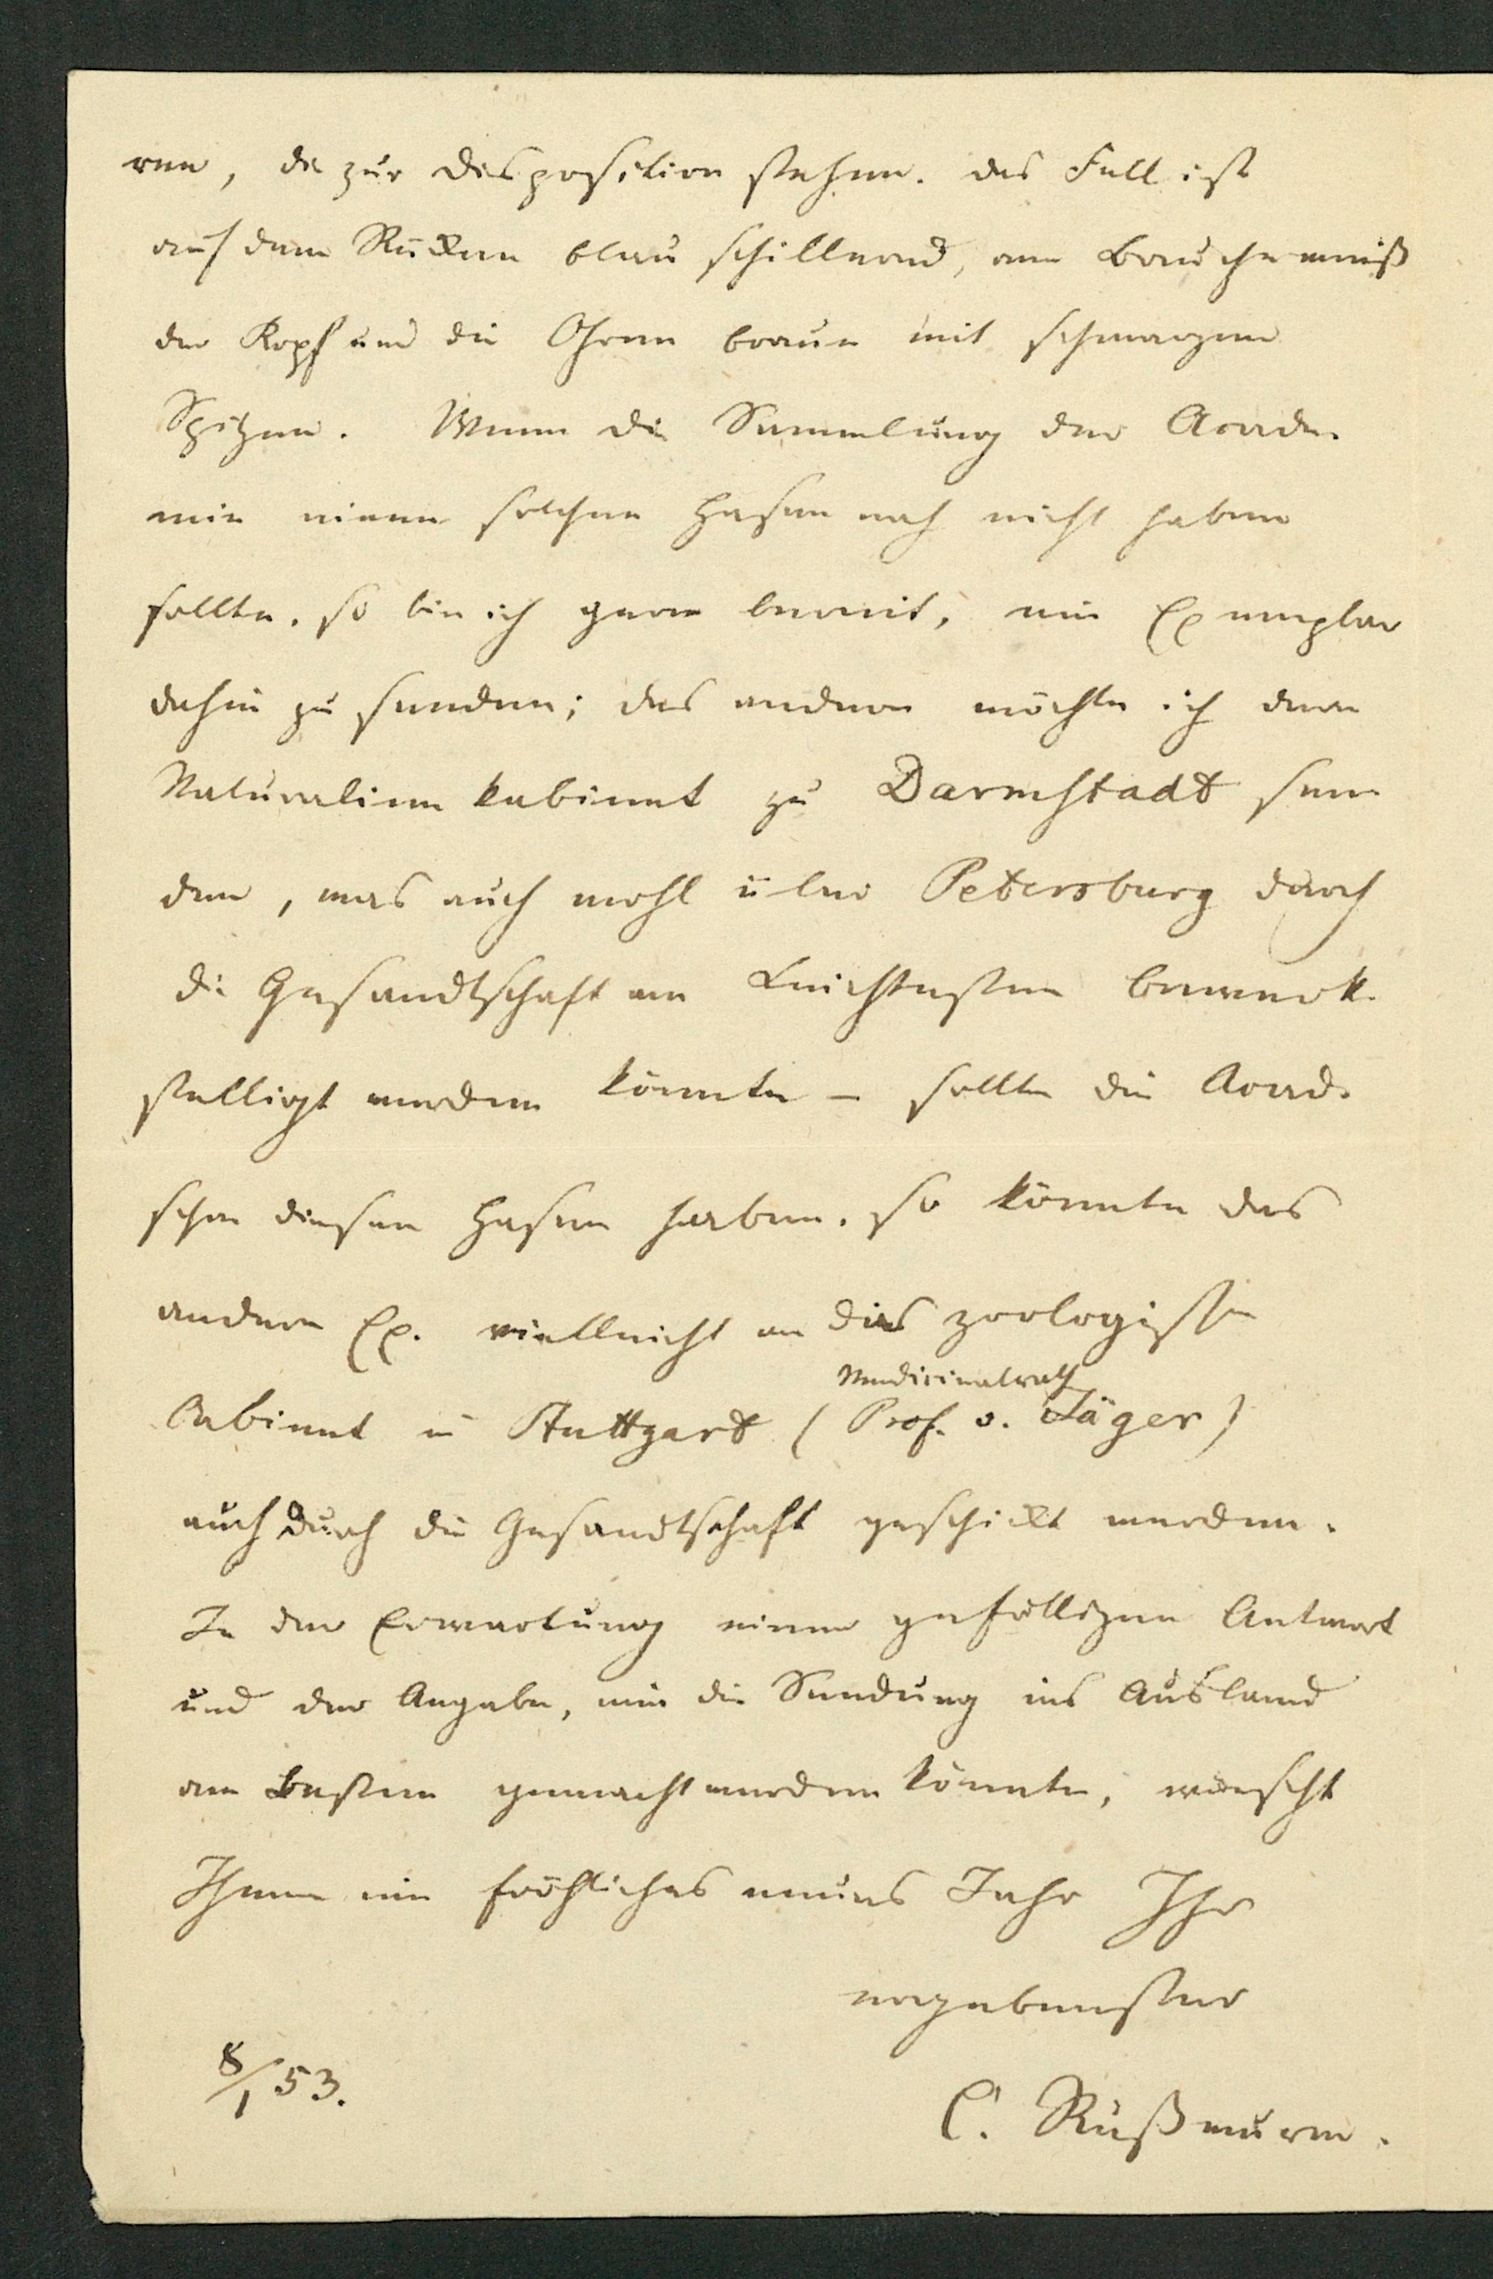 ren, die zur Disposition stehen. Das Fell ist
auf dem Rücken blau schillernd, am Bauche weiß
der Kopf und die Ohren braun mit schwarzen
Spitzen. Wenn die Sammlung der Acade-
mie einen solchen Hasen noch nicht haben
sollte, so bin ich gern bereit, ein Exemplar
dahin zu senden; das andere möchte ich dem
Naturalienkabinet zu Darmstadt sen-
den, was auch wohl über Petersburg durch
die Gesandtschaft am Leichtesten bewerk-
stelligt werden könnte – sollte die Acad.
schon diesen Hasen haben, so könnte das
andere Ex. vielleicht an das zoologische
Medicinalrath
Cabinet in Stuttgart (Prof. v. Jäger)
auch durch die Gesandtschaft geschickt werden.
In der Erwartung einer gefälligen Antwort
und der Angabe, wie die Sendung ins Ausland
am Besten gemacht werden könnte, wünscht
Ihnen ein fröhliches neues Jahr Ihr
ergebenster
8/1 53.
C. Rußwurm.